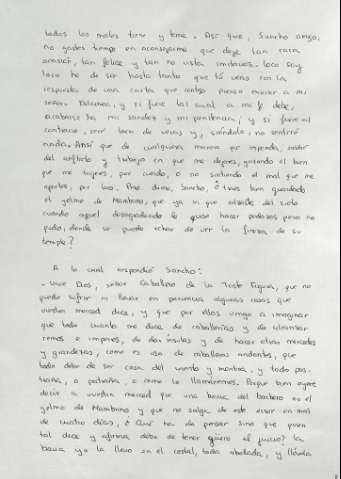 todos los males tiene y teme. Así que, Sancho amigo,
no gastes tiempo en aconsejarme que deje tan rara
, tan felice y tan no vista imitación. Loco soy,
loco he de ser hasta tanto que tú veas con la
respuesta de una carta que contigo pienso enviar a mi
señora Dulcinea; y si fuere tal cual a mi fe debe,
acabarse ha mi sandez y mi penitencia; y si fuere al
contrario, seré loco de veras y, siéndolo, no sentiré
nada. Ansí que de cualquiera manera que responda, saldré
del conflicto y trabajo en que me dejares, gozando el bien
que me trujeres, por cuerdo, o no sintiendo el mal que me
aportes, por loco. Pero dime, Sancho, ¿traes bien guardado
el yelmo de Mambrino, que ya vi que alzaste del suelo
cuando aquel desagradecido le quiso hacer pedazos pero no
pudo, donde se puede echar de ver la fineza de su
temple?
A lo cual respondió Sancho:
- Vive Dios, señor Caballero de la Triste Figura, que no
puedo sufrir ni llevar en paciencia algunas cosas que
vuestra merced dice, y que por ellas vengo a imaginar
que todo cuanto me dice de caballerías y de alcanzar
reinos e imperios, de dar ínsulas y de hacer otras mercedes
y grandezas, como es uso de caballeros andantes, que
todo debe de ser cosa del viento y mentira, y todo pas-
traña, o patraña, o como lo llamáremos. Porque quien oyere
decir a vuestra merced que una bacía del barbero es el
yelmo de Mambrino y que no salga de este error en más
de cuatro días, ¿Qué ha de pensar sino que quien
tal dice y afirma debe de tener güero el juicio? La
bacía yo la llevo en el costal, toda abollada, y llévola